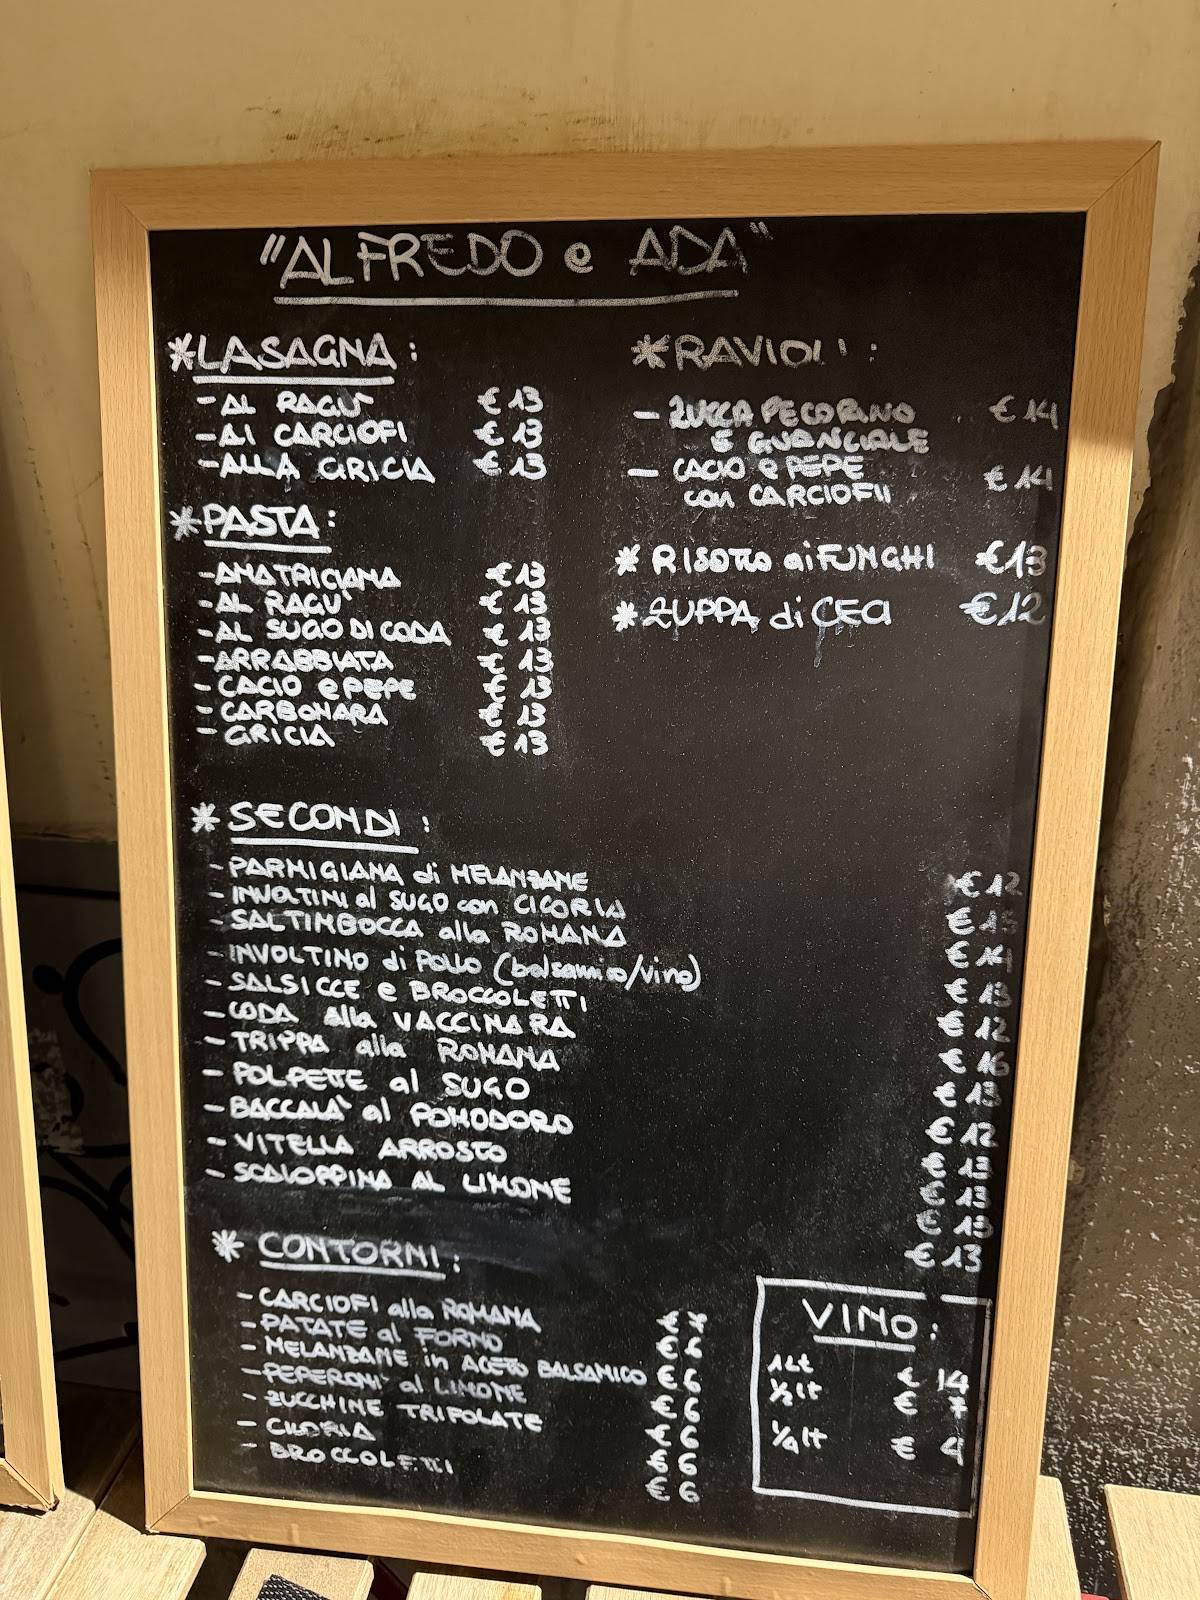 "ALFREDO e ADA"
*LASAGNA:
- AL RAGU' € 13
- AI CARCIOFI € 13
- ALLA GRICIA € 13
*PASTA:
- AMATRICIANA € 13
- AL RAGU' € 13
- AL SUGO DI CODA € 13
- ARRABBIATA € 13
- CACIO e PEPE € 13
- CARBONARA € 13
- GRICIA € 13
*RAVIOLI:
- ZUCCA PECORINO € 14
E GUANCIALE
- CACIO e PEPE € 14
con CARCIOFI
* RISOTTO ai FUNGHI €13
* ZUPPA di CECI €12
* SECONDI:
- PARMIGIANA di MELANZANE € 12
- INVOLTINI al SUGO con CICORIA € 15
- SALTIMBOCCA alla ROMANA € 14
- INVOLTINO di POLLO (balsamico/vino) € 13
- SALSICCE e BROCCOLETTI € 12
- CODA alla VACCINARA € 16
- TRIPPA alla ROMANA € 13
- POLPETTE al SUGO € 12
- BACCALA' al POMODORO € 13
- VITELLA ARROSTO € 13
- SCALOPPINA AL LIMONE € 13
€ 13
* CONTORNI:
- CARCIOFI alla ROMANA €
- PATATE al FORNO € 6
- MELANZANE in ACETO BALSAMICO € 6
- PEPERONI al LIMONE € 6
- ZUCCHINE TRIFOLATE € 6
- CICORIA € 6
- BROCCOLETTI € 6
VINO:
1Lt € 14
1/2 lt € 7
1/4 lt € 4